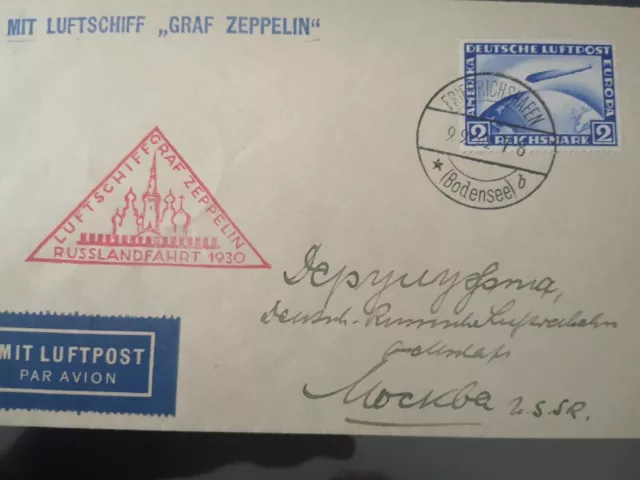 MIT LUFTSCHIFF „GRAF ZEPPELIN“
DEUTSCHE LUFTPOST
AMERIKA
EUROPA
2 REICHSMARK 2
FRIEDRICHSHAFEN
(Bodensee) b
LUFTSCHIFF GRAF ZEPPELIN
RUSSLANDFAHRT 1930
Дерулуфта,
Deutsch-Russische
Москва U.S.S.R.
MIT LUFTPOST
PAR AVION